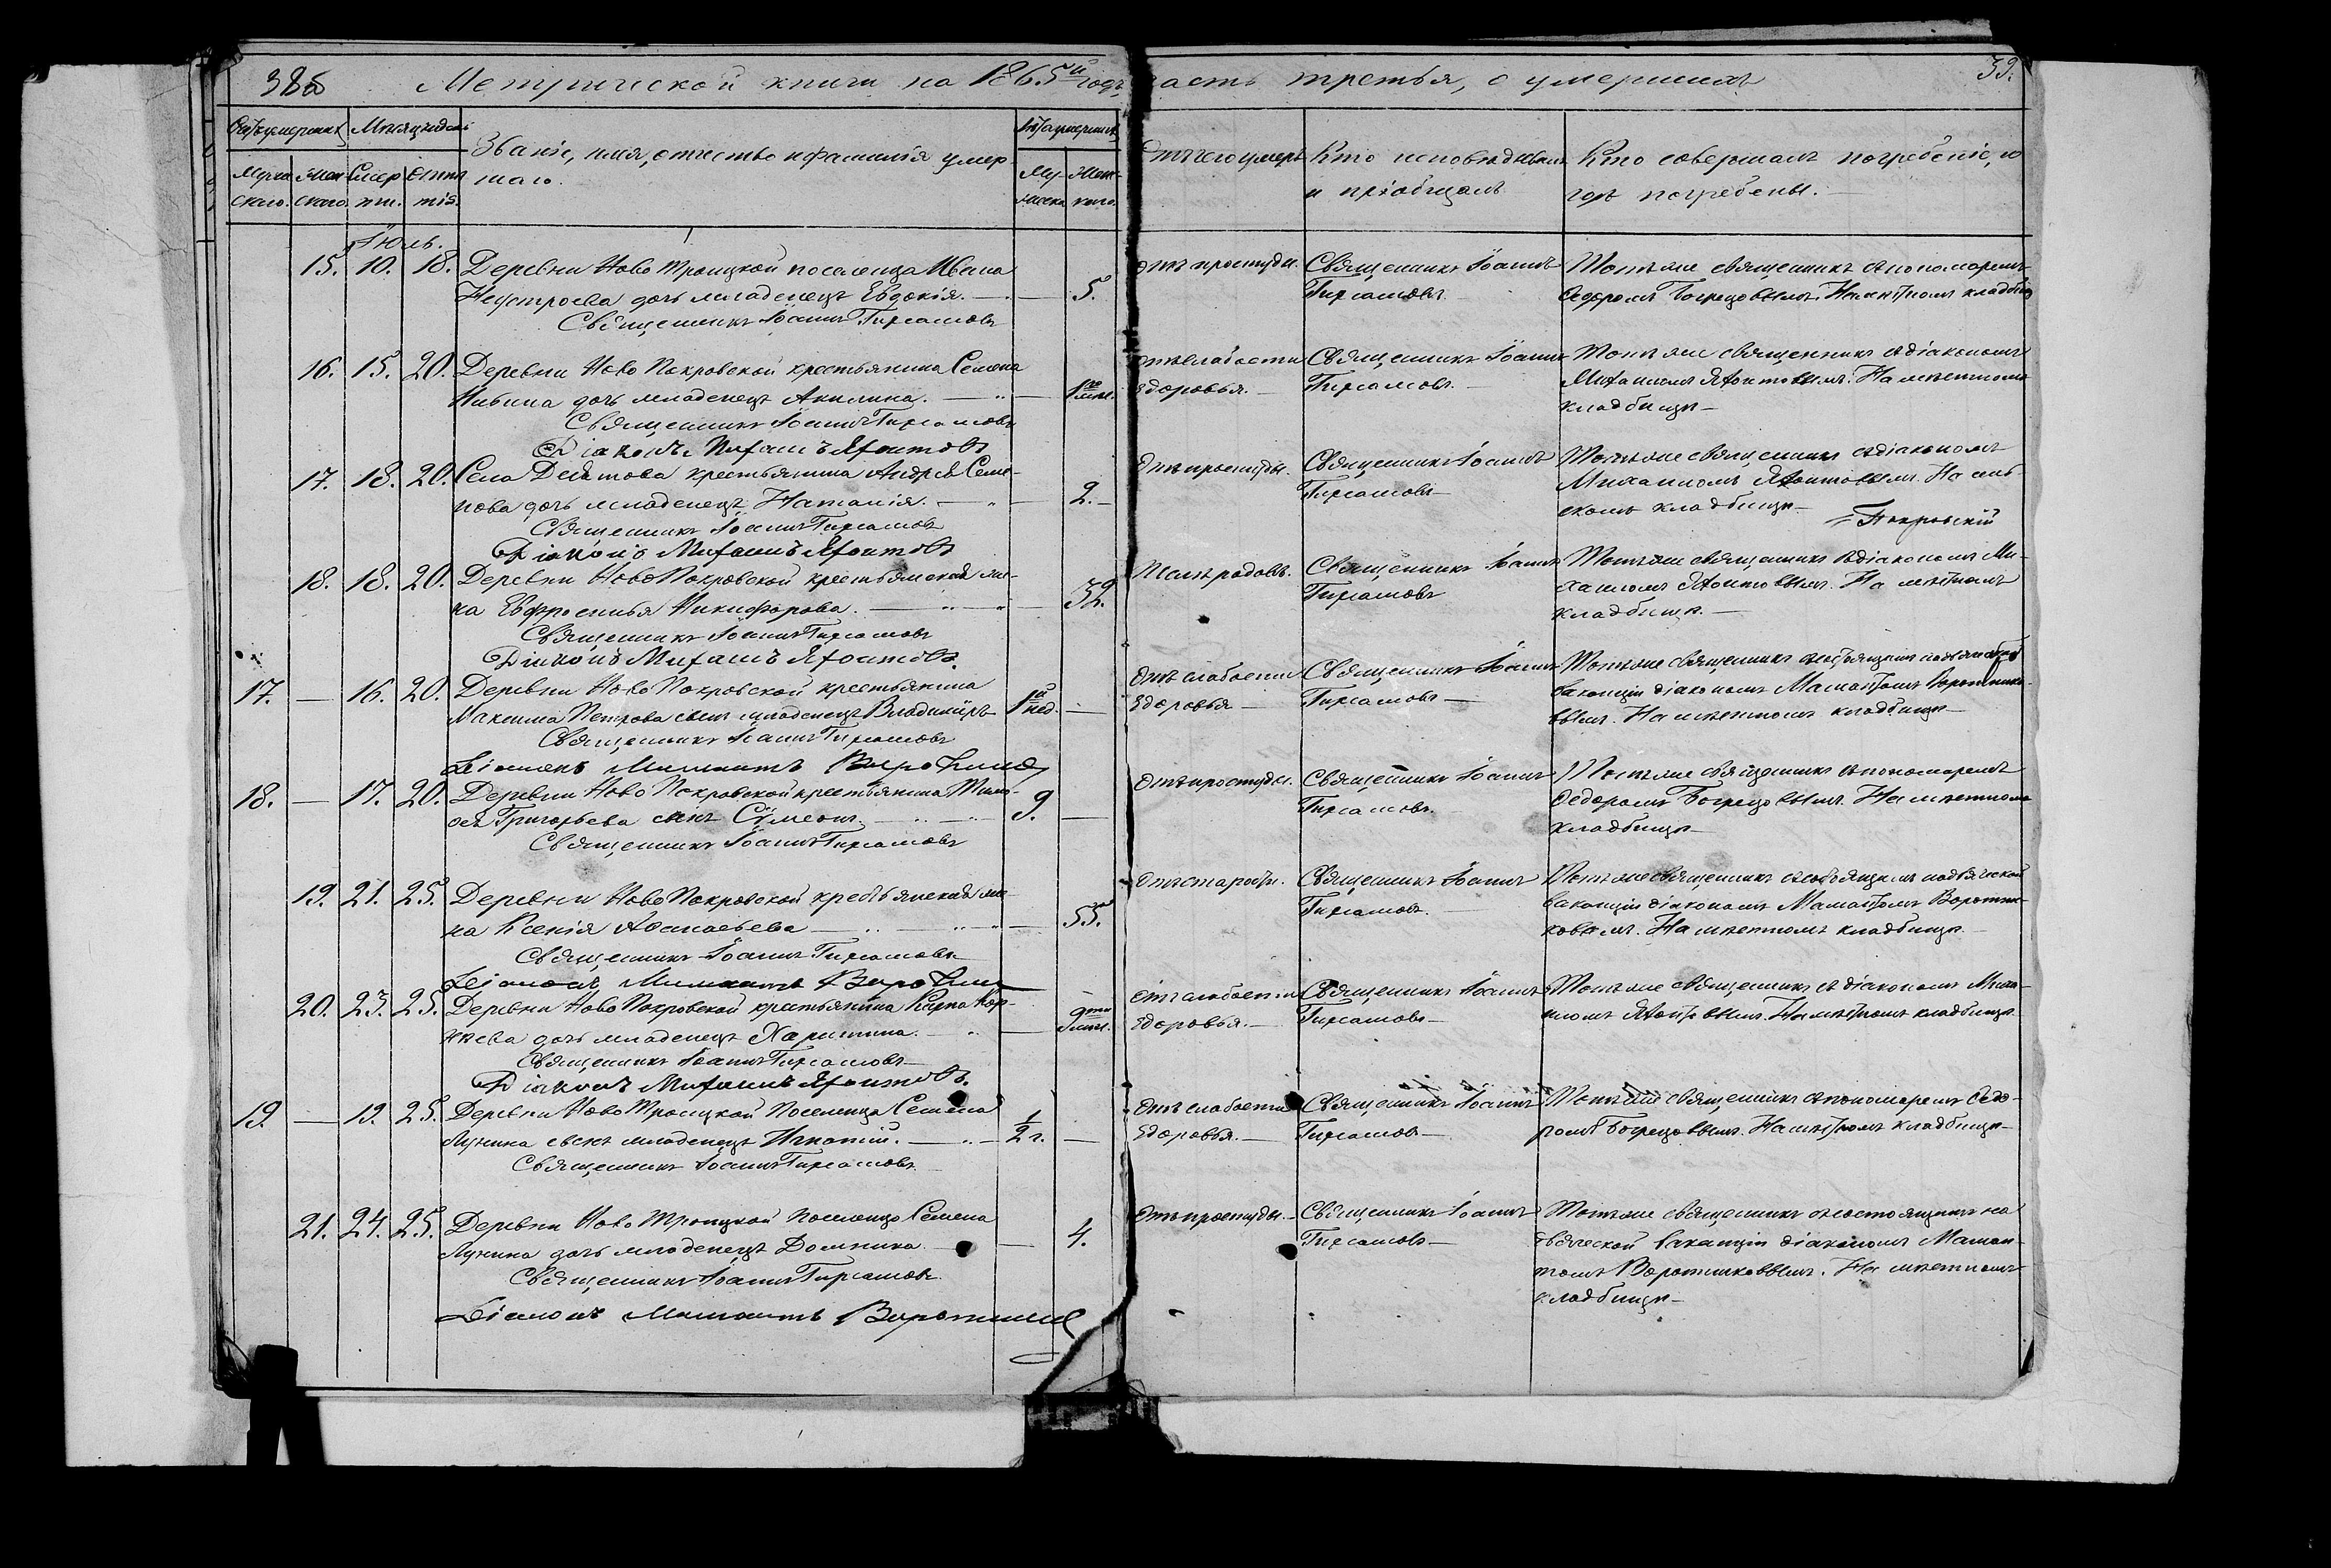 38об
Метрической книги на 1865й годъ,
часть третья, о умершихъ
39.
Счетъ умершихъ
Мѣсяцъ и день
Званіе, имя, отчество и фамилія умер-
шаго.
Лѣта умершихъ
Муже-
скаго.
Жен-
скаго.
Смер-
ти.
Отпѣ-
тія.
Му-
жеска
Жен-
скаго.
Отъ чего умеръ
Кто исповѣдывалъ
и пріобщалъ
Кто совершалъ погребеніе, и
гдѣ погребены.
Іюль.
15. 10. 18. Деревни Ново Троицкой поселенца Ивана
Неустроева дочь младенецъ Евдокія. — 5.
Священникъ Іоаннъ Гирсамовъ
Отъ простуды.
Священникъ Іоаннъ
Гирсамовъ.
Тотъ же священникъ съ пономаремъ
Ѳедоромъ Богрецовымъ. На мѣстномъ кладбищѣ
16. 15. 20. Деревни Ново Покровской крестьянина Семена
дочь младенецъ Акилина. —
Священникъ Іоаннъ Гирсамовъ
Діаконъ Михаилъ Яхонтовъ
Отъ слабости
здоровья. —
Священникъ Іоаннъ
Гирсамовъ. —
Тотъ же священникъ съ діакономъ
Михаиломъ Яхонтовымъ. На мѣстномъ
кладбищѣ —
17. 18. 20. Села крестьянина Андрея Семе-
нова дочь младенецъ Наталія. — 2. —
Священникъ Іоаннъ Гирсамовъ
Діаконъ Михаилъ Яхонтовъ
Отъ простуды.
Священникъ Іоаннъ
Гирсамовъ —
Тотъ же священникъ съ діакономъ
Михаиломъ Яхонтовымъ. На
кладбищѣ —
Покровскій
18. 18. 20. Деревни Ново Покровской крестьянская же-
на Евфросинья Никифорова. — 32.
Священникъ Іоаннъ Гирсамовъ
Діаконъ Михаилъ Яхонтовъ.
родовъ.
Священникъ Іоаннъ
Гирсамовъ
Тотъ же священникъ съ діакономъ Ми-
хаиломъ Яхонтовымъ. На мѣстномъ
кладбищѣ. —
17. — 16. 20. Деревни Ново Покровской крестьянина
Максима Петрова сынъ младенецъ Владиміръ 1й нед. —
Священникъ Іоаннъ Гирсамовъ
Діаконъ Мамонтъ
Отъ слабости
здоровья —
Священникъ Іоаннъ
Гирсамовъ —
Тотъ же священникъ
вакансіи діакономъ Мамонтомъ Воротнико-
вымъ. На мѣстномъ кладбищѣ —
18. — 17. 20. Деревни Ново Покровской крестьянина Тимо-
ѳея Григорьева сынъ Сѵмеонъ. — 9. —
Священникъ Іоаннъ Гирсамовъ
Отъ простуды.
Священникъ Іоаннъ
Гирсамовъ.
Тотъ же священникъ съ пономаремъ
Ѳедоромъ Богрецовымъ. На мѣстномъ
кладбищѣ —
19. 21. 25. Деревни Ново Покровской крестьянская же-
на Ксенія Аѳанасьева — 55.
Священникъ Іоаннъ Гирсамовъ
Діаконъ Мамонтъ
Отъ старости.
Священникъ Іоаннъ
Гирсамовъ. —
Тотъ же священникъ съ состоящимъ на дьяческой
вакансіи діакономъ Мамонтомъ Воротни-
ковымъ. На мѣстномъ кладбищѣ. —
20. 23. 25. Деревни Ново Покровской крестьянина Карпа
дочь младенецъ Харитина. —
Священникъ Іоаннъ Гирсамовъ —
Діаконъ Михаилъ Яхонтовъ.
Отъ слабости
здоровья. —
Священникъ Іоаннъ
Гирсамовъ —
Тотъ же священникъ съ діакономъ Миха-
иломъ Яхонтовымъ. На мѣстномъ кладбищѣ
19. — 19. 25. Деревни Ново Троицкой поселенца Семена
Лунина сынъ младенецъ Игнатій. — 1/2 г. —
Священникъ Іоаннъ Гирсамовъ
Отъ слабости
здоровья. —
Священникъ Іоаннъ
Гирсамовъ —
Тотъ же священникъ съ пономаремъ Ѳедо-
ромъ Богрецовымъ. На мѣстномъ кладбищѣ —
21. 24. 25. Деревни Ново Троицкой поселенца Семена
Лунина дочь младенецъ Домника. — 4.
Священникъ Іоаннъ Гирсамовъ
Діаконъ Мамонтъ Воротников
Отъ простуды. —
Священникъ Іоаннъ
Гирсамовъ —
Тотъ же священникъ съ состоящимъ на
дьяческой вакансіи діакономъ Мамон-
томъ Воротниковымъ. На мѣстномъ
кладбищѣ —